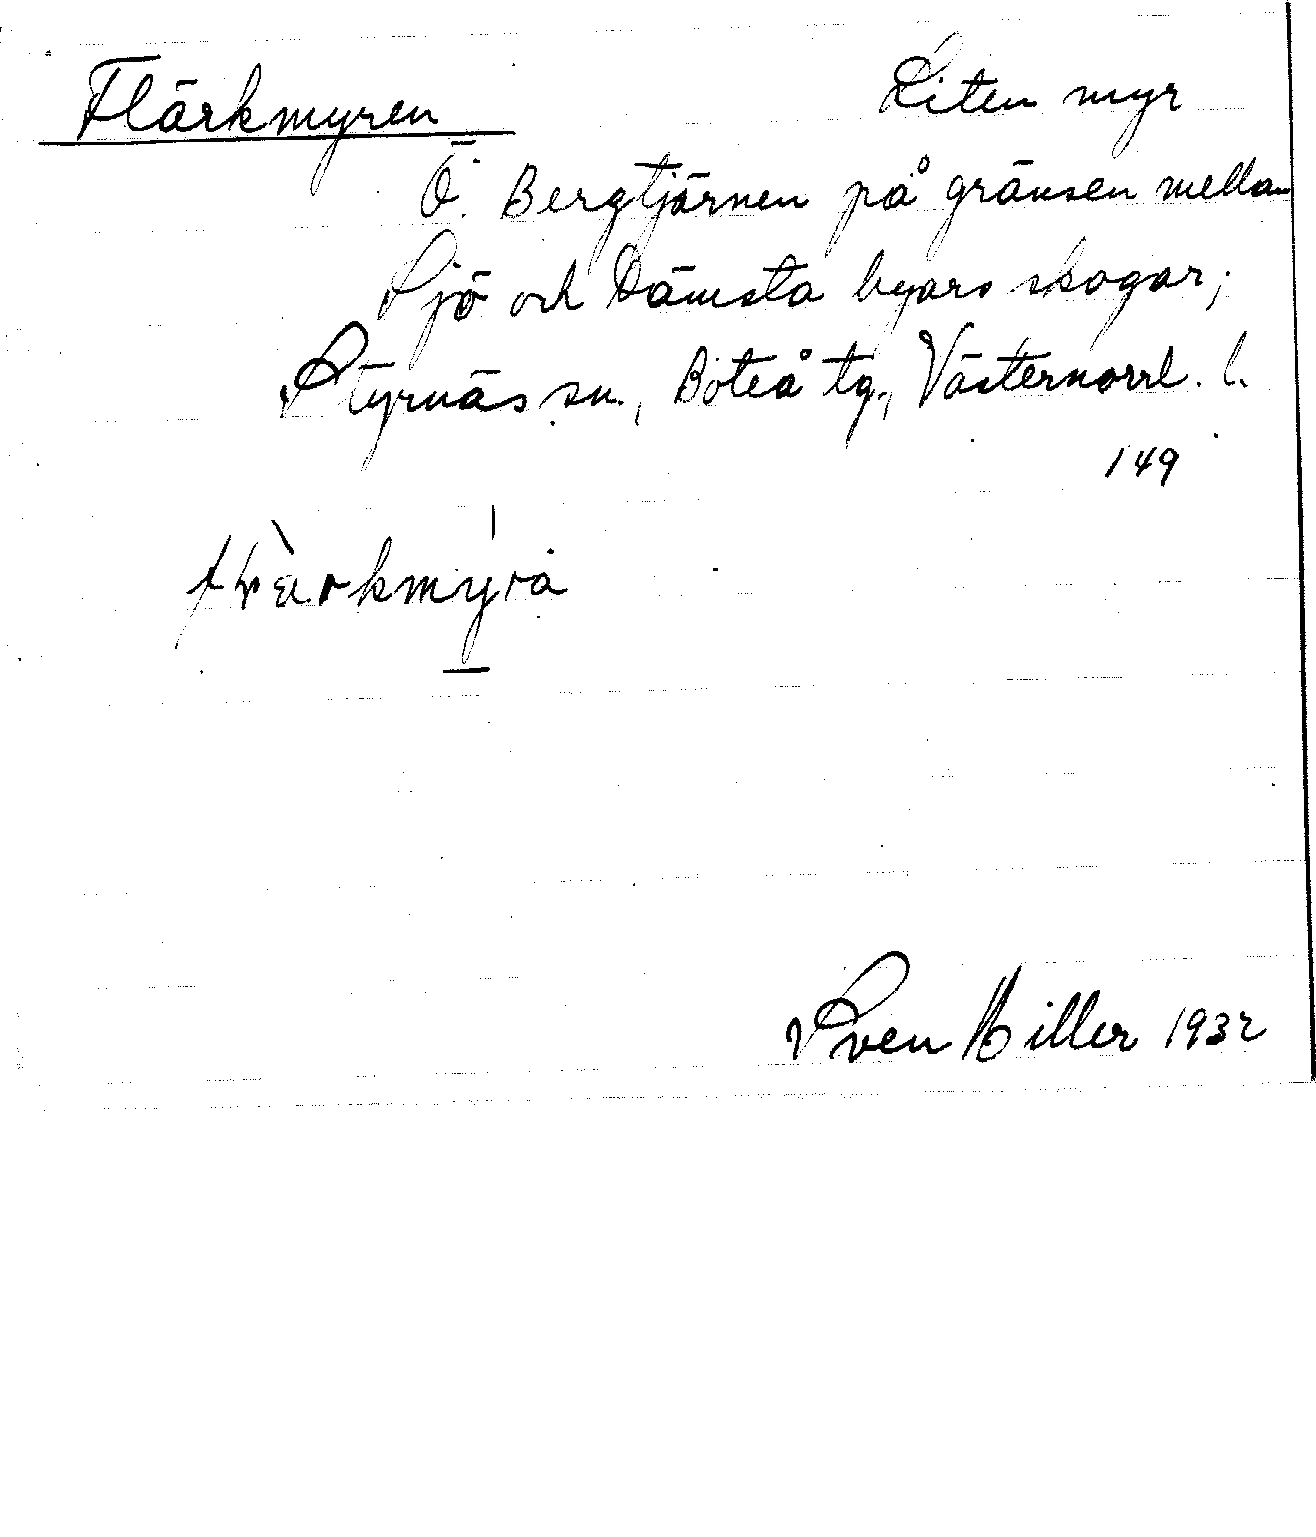 Flärkmyren Liten myr
Ö. Bergtjärnen på gränsen mellan
Sjö och Dämsta byars skogar;
Styrnäs sn., Boteå tg., Västernorrl. l.
149
Sven Hiller 1932